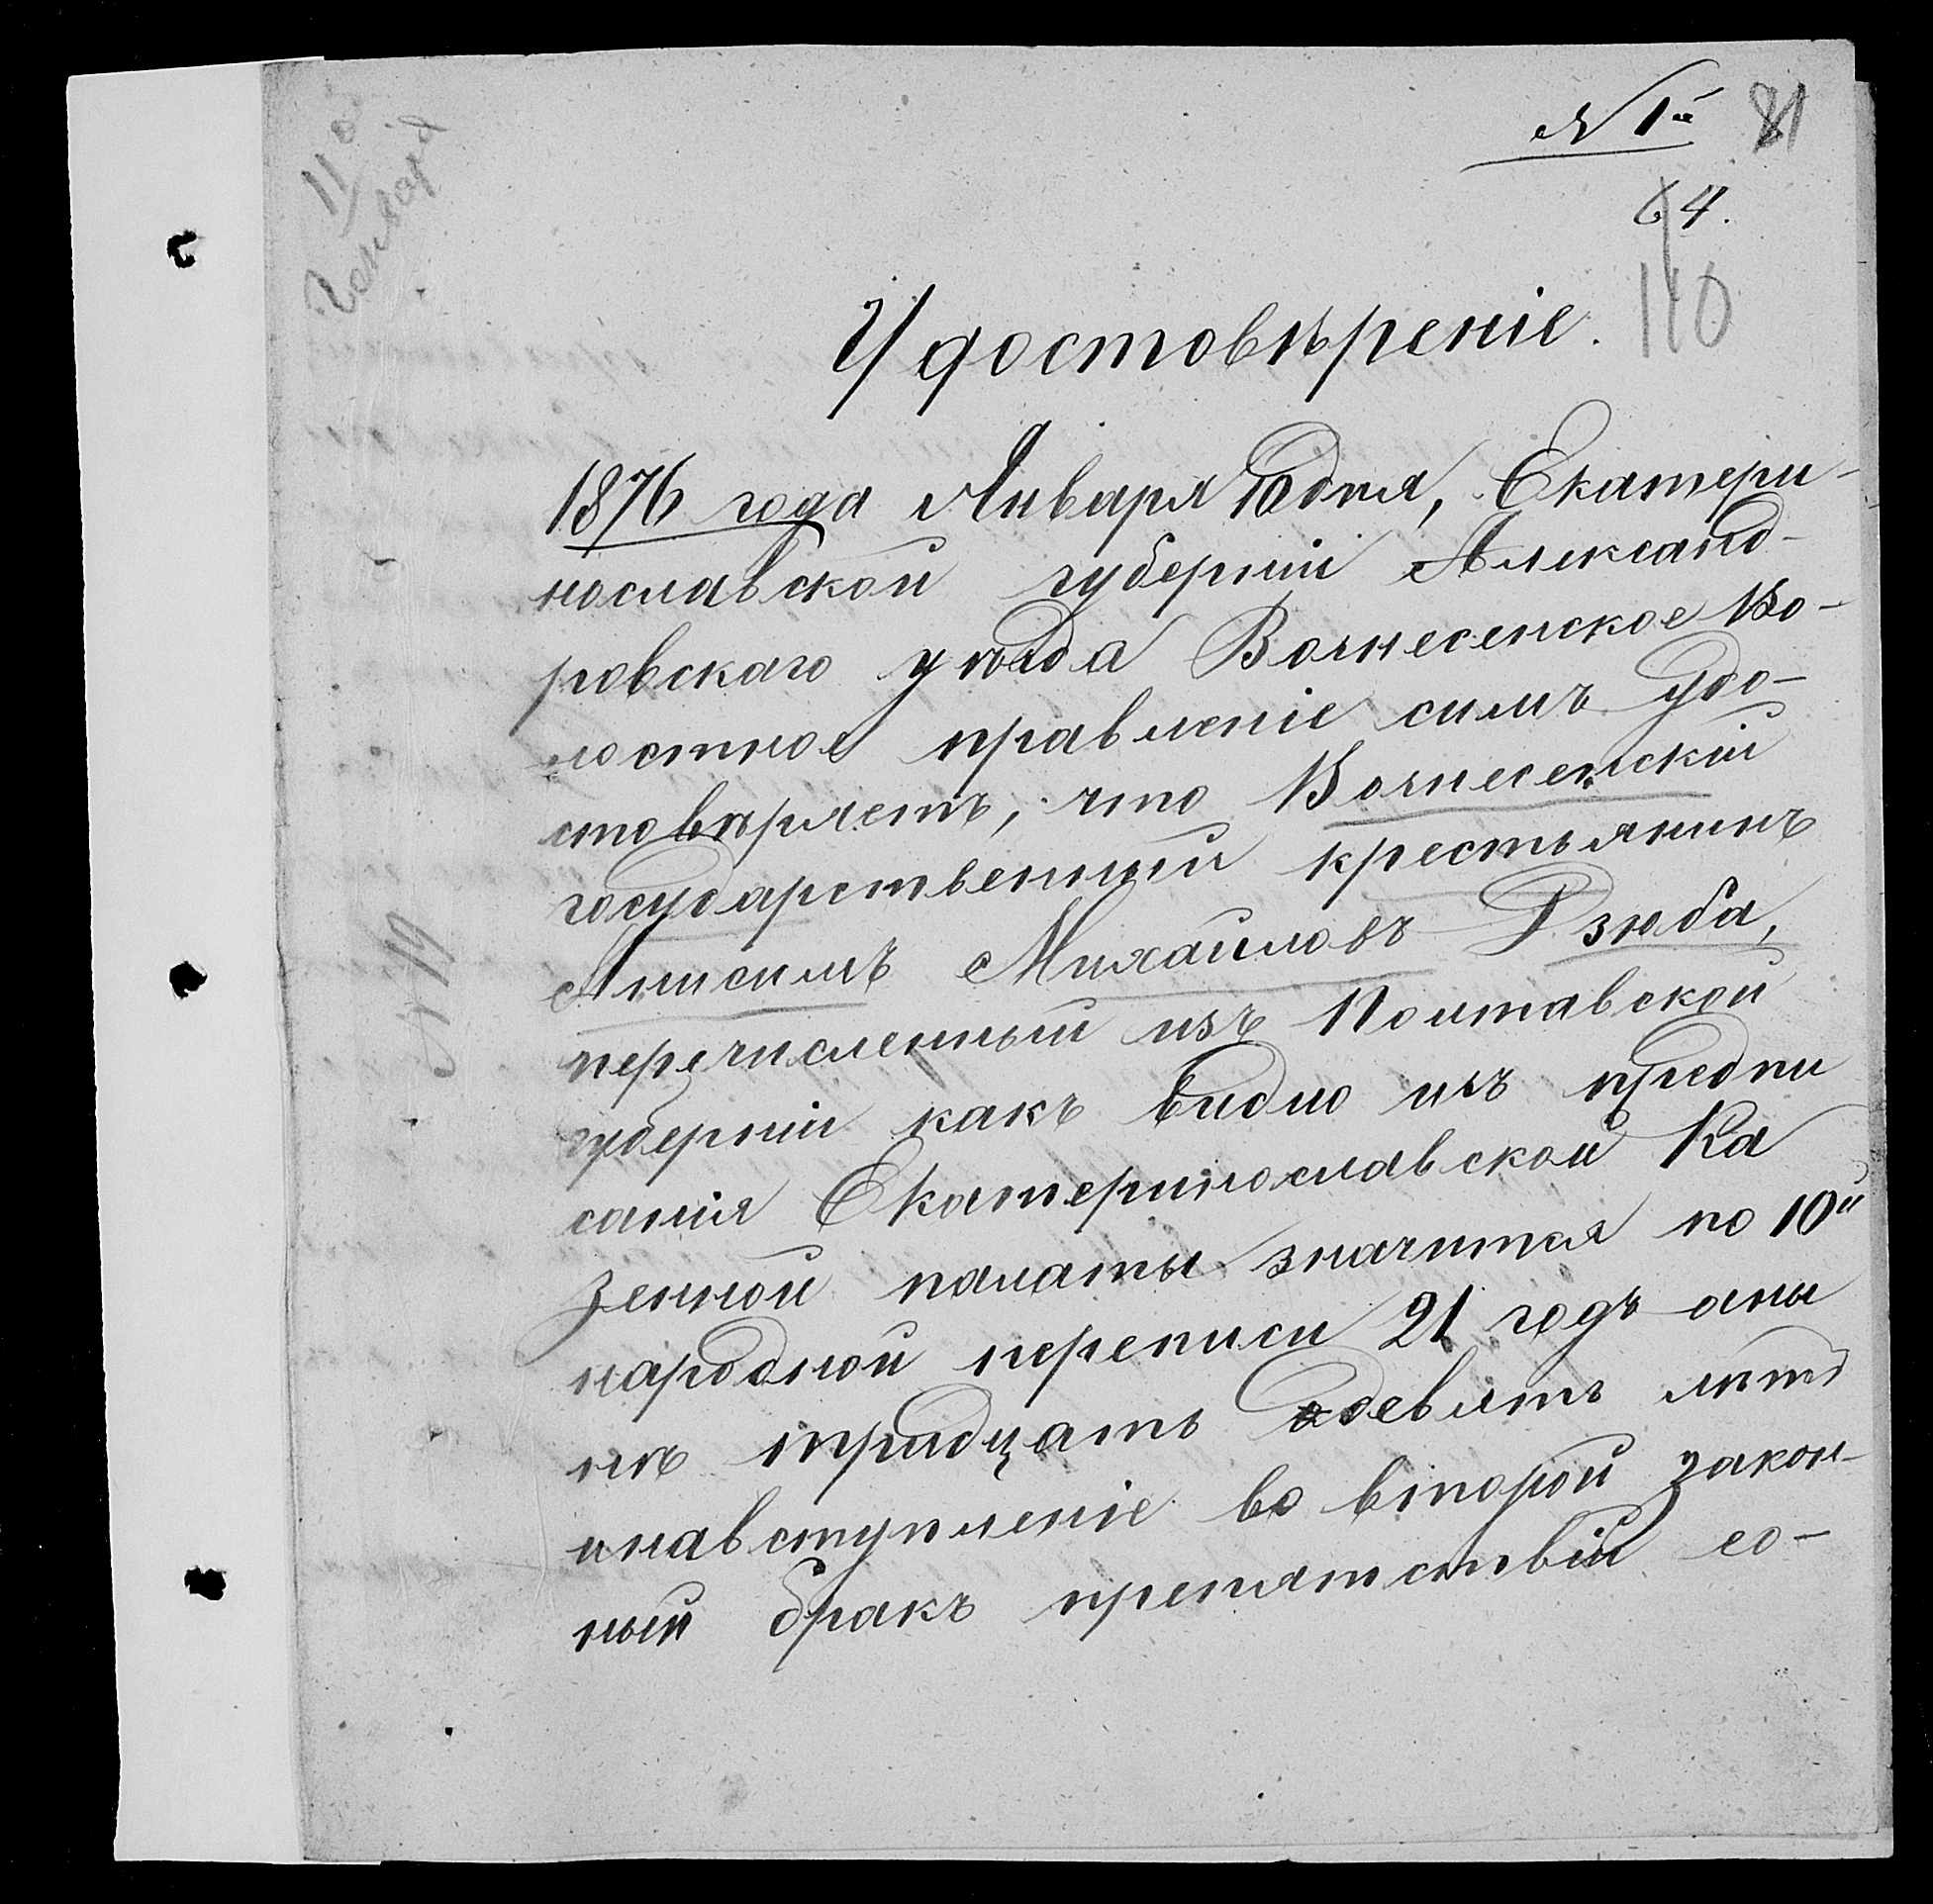 № 1й 81
64.
110
11го
Января
Удостовѣреніе.
1876 года Января 10 дня, Екатери-
нославской губерніи Александ-
ровскаго уѣзда Вознесенское Во-
лостное правленіе симъ удо-
стовѣряетъ, что Вознесенскій
государственный крестьянинъ
Анисимъ Михайловъ Дзюба,
№
перечисленный изъ Полтавской
губерніи какъ видно изъ предпи
санія Екатеринославской Ка
зенной палаты значится по 10й
народной переписи 21 годъ аны
нѣ тридцать девять лѣтъ
инавступленіе во второй закон-
ный бракъ препятствій со-